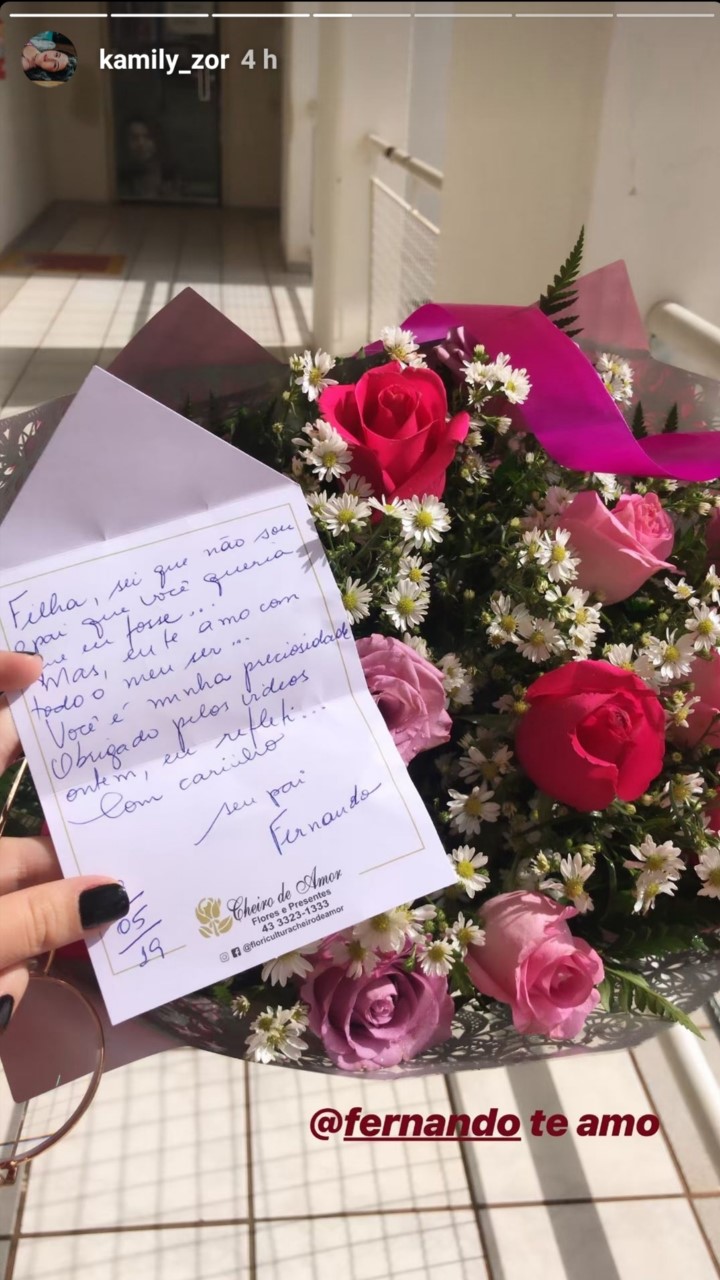 kamily_zor 4 h
Filha, sei que não sou
o pai que você queria
que eu fosse...
Mas, eu te amo com
todo o meu ser...
Você é minha preciosidade
Obrigado pelos vídeos
ontem, eu refleti...
Com carinho
seu pai
Fernando
05/
19
Cheiro de Amor
Flores e Presentes
43 3323-1333
@floriculturacheirodeamor
@fernando te amo